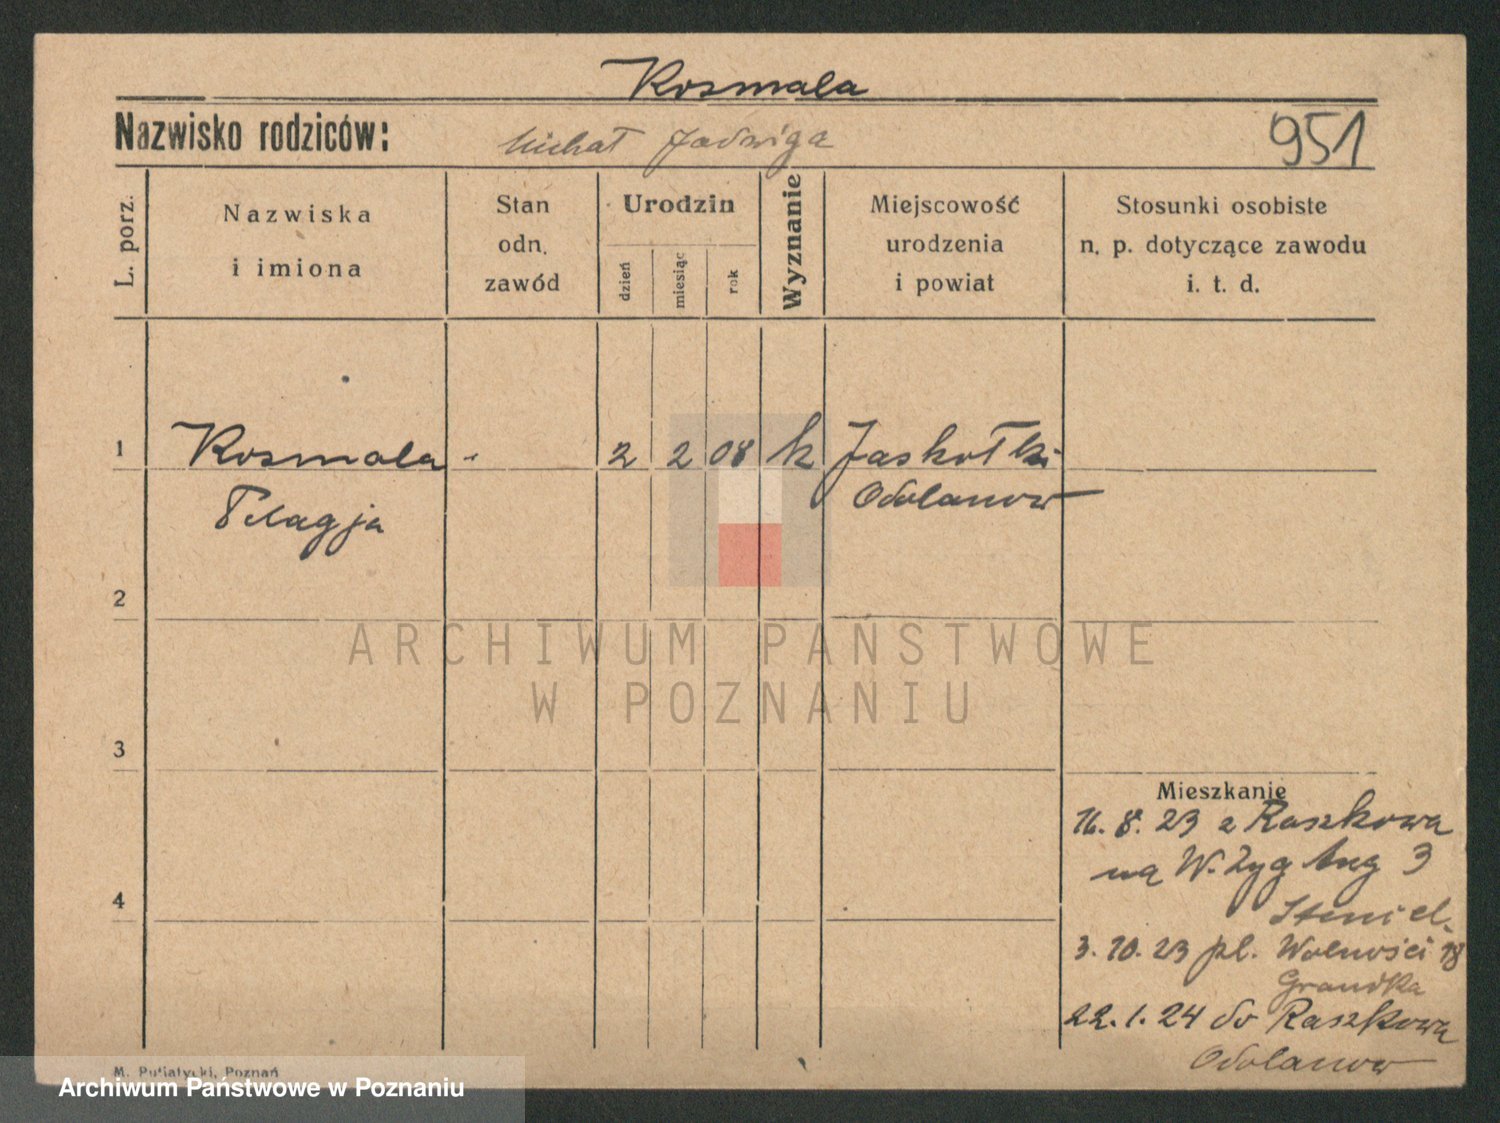 Kosmala
Nazwisko rodziców: Michał Jadwiga 951
L. porz.
Nazwiska
i imiona
Stan
odn.
zawód
Urodzin
dzień
miesiąc
rok
Wyznanie
Miejscowość
urodzenia
i powiat
Stosunki osobiste
n. p. dotyczące zawodu
i. t. d.
1 Kosmala - 2 2 08 k Jaskołki
Pelagja Odolanow
2
3
4
ARCHIWUM PAŃSTWOWE
W POZNANIU
Mieszkanie
16. 8. 23 z Raszkowa
na W. Zyg Aug 3
3. 10. 23 pl. Wolności 18
22. 1. 24 do Raszkowa
Odolanow
M. Putiatycki, Poznań
Archiwum Państwowe w Poznaniu